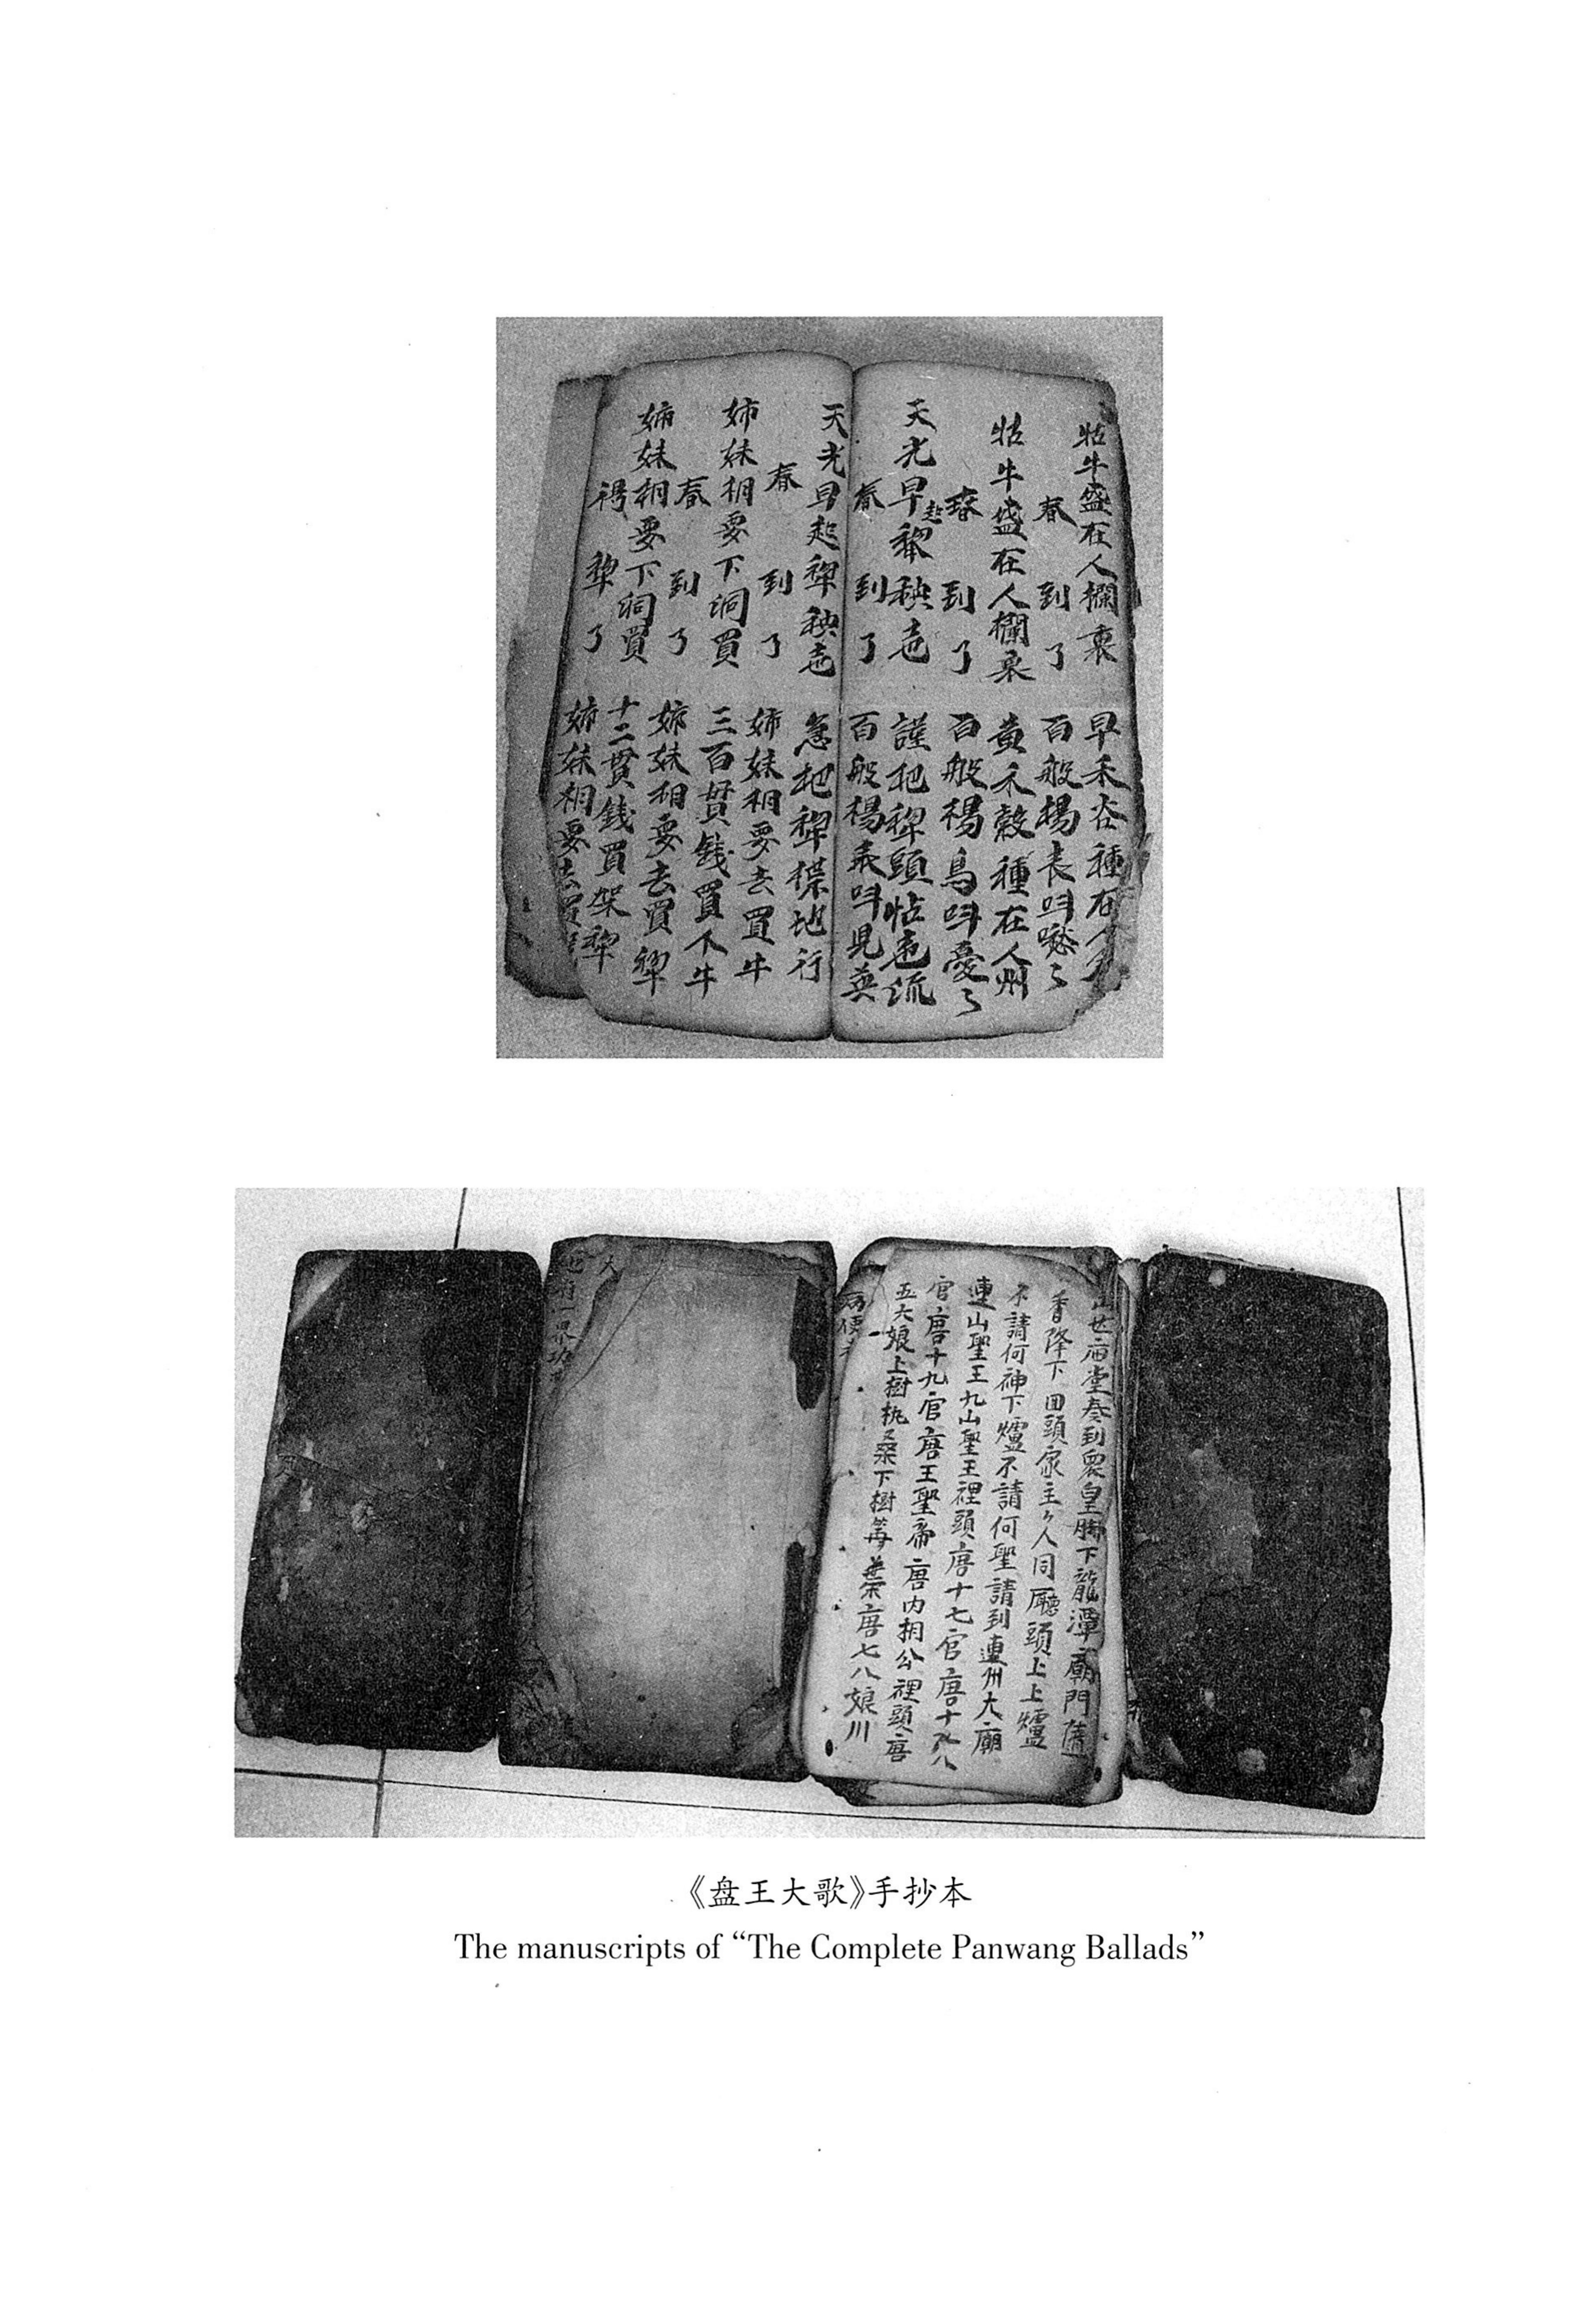 牯牛盛在人欄裏
早禾谷種在人
春到了
百般楊表呌愁〻
牯牛盛在人欄裏
黄禾穀種在人州
春到了
百般楊鳥呌憂〻
天光早起犂秧
謹把犂頭怗流
春到了
百般楊表呌見英
天光早起犂秧
急把犂地行
春到了
姉妹相要去買牛
姉妹相要下洞買
三百貫錢買不牛
春到了
姉妹相要去買犂
姉妹相要下洞買
十二貫錢買架犂
犂了
姉妹相要去買
庙堂叁到衆皇脚下龍潭廟門
香降下回頭家主〻人同廳頭上上爐
不請何神下爐不請何聖請到連州大廟
連山聖王九山聖王裡頭唐十七官唐十八
官唐十九官唐王聖帝唐内相公裡頭唐
五六娘上樹执桑下樹葉唐七八娘川
《盘王大歌》手抄本
The manuscripts of “The Complete Panwang Ballads”